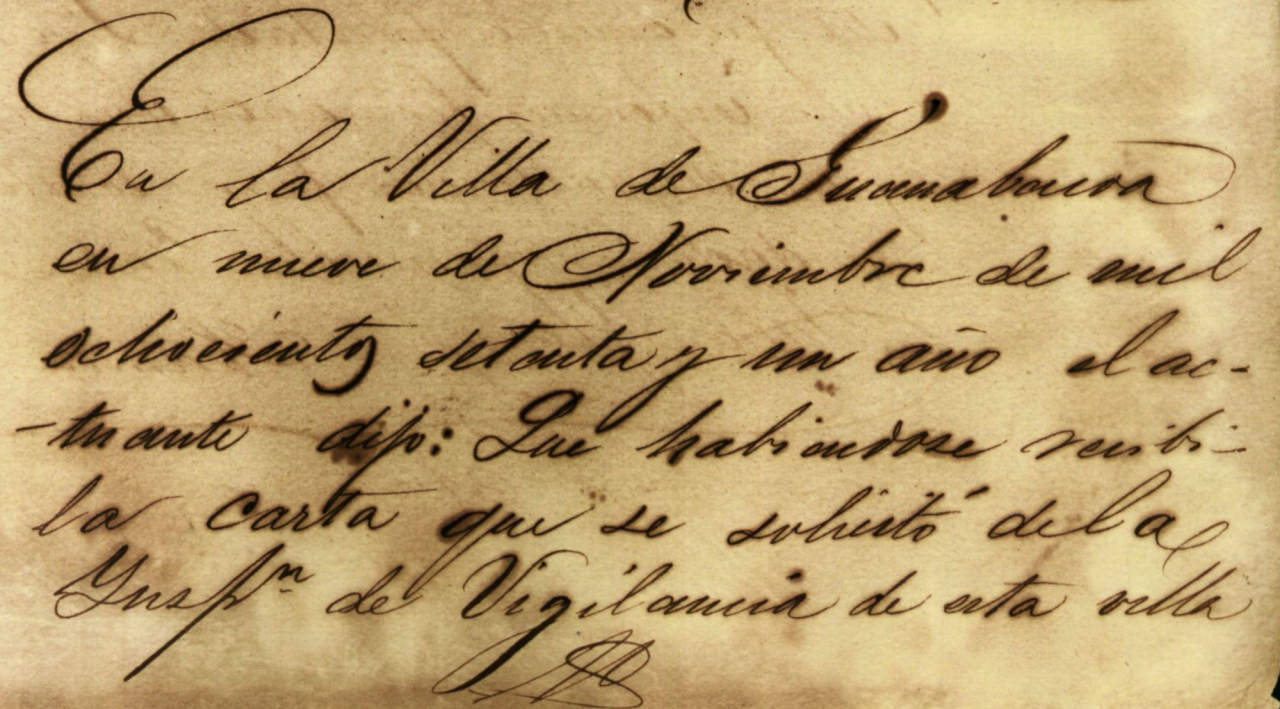 En la Villa de Guanabacoa
en nueve de Noviembre de mil
ochocientos setenta y un año el ac-
-tuante dijo: Que habiendose recibi-
la carta que se solicitó de la
Ynspn de Vigilancia de esta villa